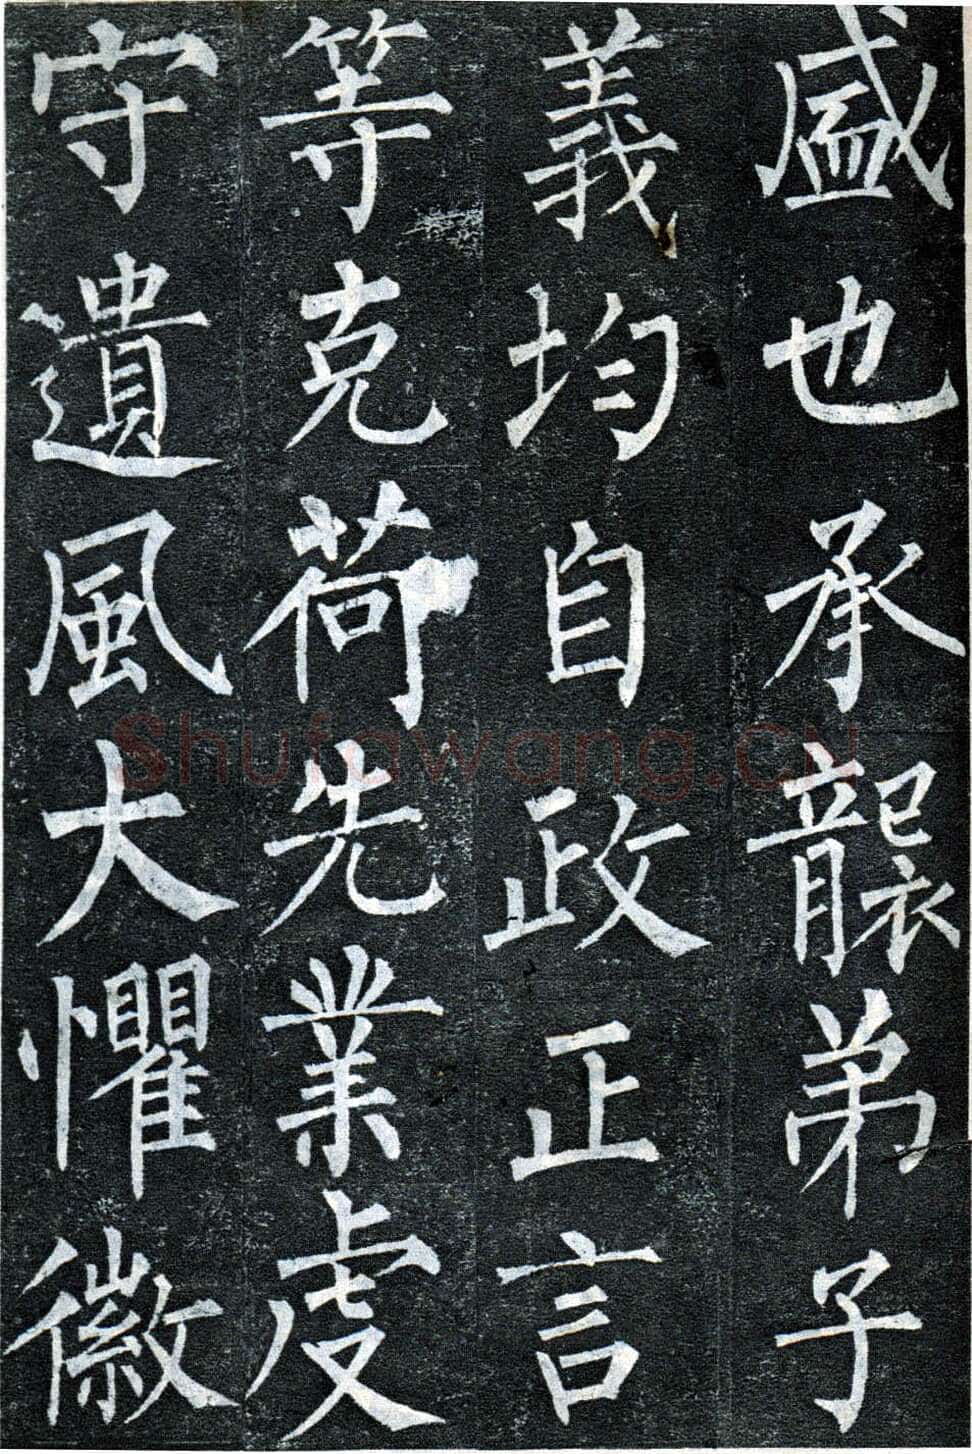 盛也承襲弟子
義均自政正言
等克荷先業虔
守遺風大懼徽
Shufawang.cn